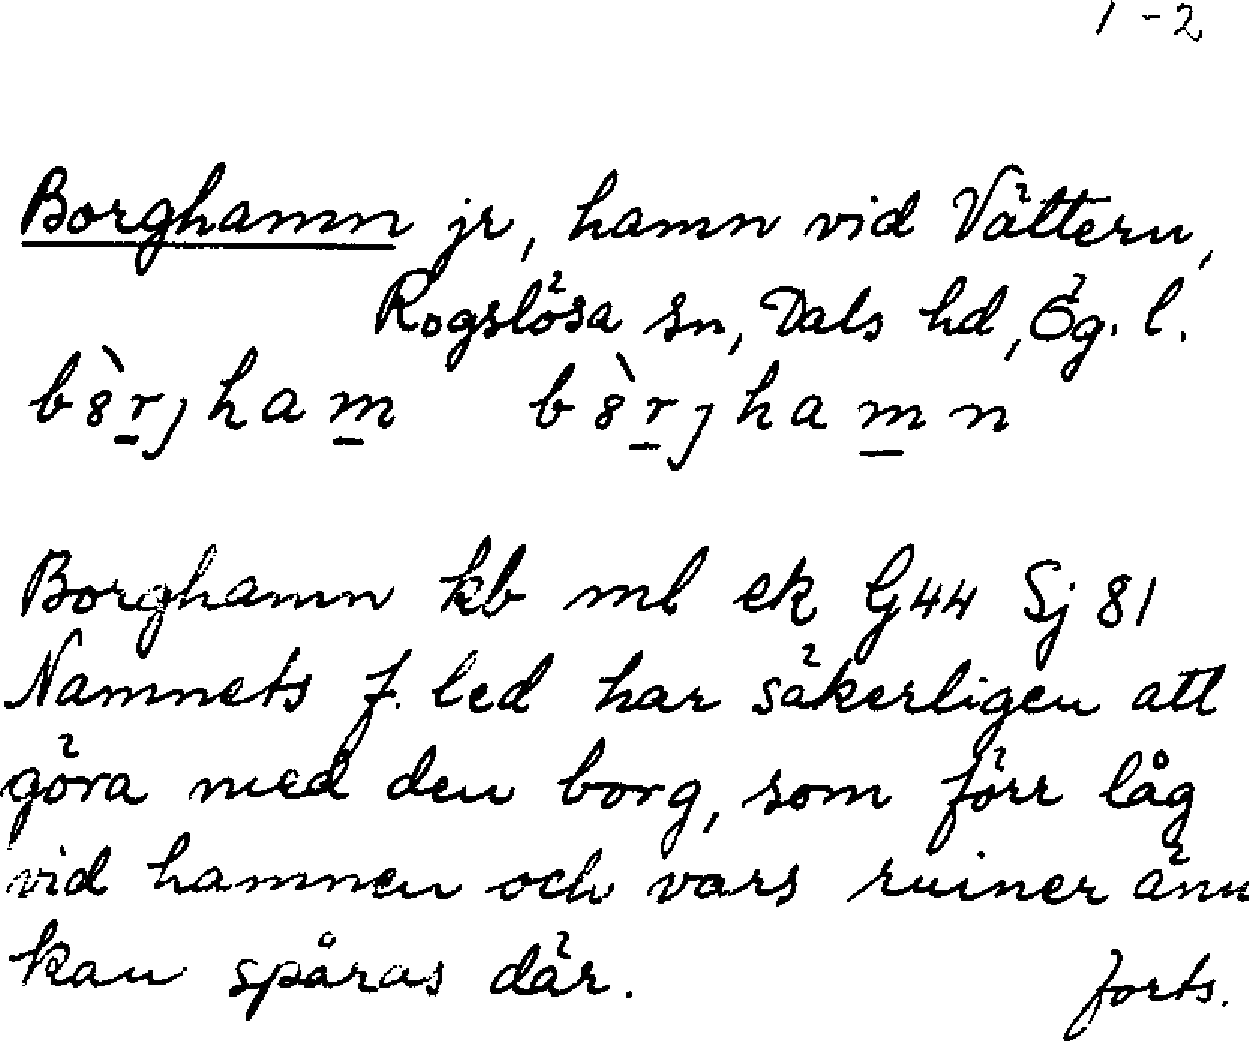 1-2
Borghamn jr, hamn vid Vättern,
Rogslösa sn, Dals hd, Ög. l.
b8̀rjham b8̀rjhamn
Borghamn kb ml ek G44 Sj 81
Namnets f. led har säkerligen att
göra med den borg, som förr låg
vid hamnen och vars ruiner änn
kan spåras där. forts.